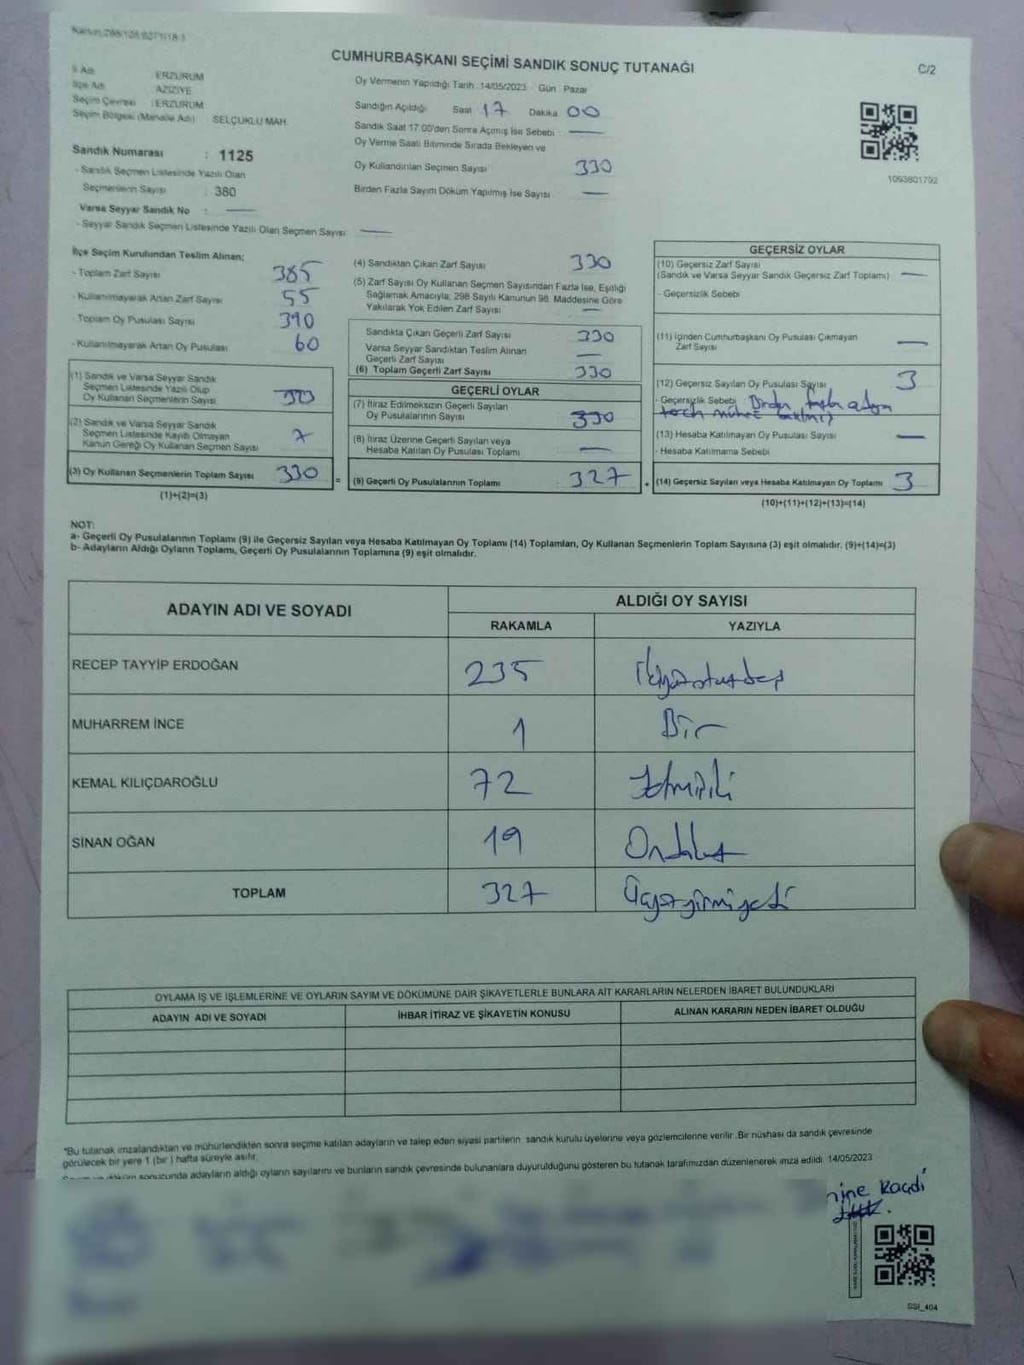 CUMHURBAŞKANI SEÇİMİ SANDIK SONUÇ TUTANAĞI
C/2
İl Adı ERZURUM
İlçe Adı AZİZİYE
Seçim Çevresi : ERZURUM
Seçim Bölgesi (Mahalle Adı) SELÇUKLU MAH.
Sandık Numarası : 1125
- Sandık Seçmen Listesinde Yazılı Olan
Seçmenlerin Sayısı : 380
Varsa Seyyar Sandık No : —
- Seyyar Sandık Seçmen Listesinde Yazılı Olan Seçmen Sayısı —
Oy Vermenin Yapıldığı Tarih : 14/05/2023 Gün : Pazar
Sandığın Açıldığı Saat 17 Dakika 00
Sandık Saat 17.00'den Sonra Açılmış İse Sebebi —
Oy Verme Saati Bitiminde Sırada Bekleyen ve
Oy Kullandırılan Seçmen Sayısı 330
Birden Fazla Sayım Döküm Yapılmış İse Sayısı —
1093801792
İlçe Seçim Kurulundan Teslim Alınan;
- Toplam Zarf Sayısı 385
- Kullanılmayarak Artan Zarf Sayısı 55
- Toplam Oy Pusulası Sayısı 390
- Kullanılmayarak Artan Oy Pusulası 60
(1) Sandık ve Varsa Seyyar Sandık
Seçmen Listesinde Yazılı Olup
Oy Kullanan Seçmenlerin Sayısı
(2) Sandık ve Varsa Seyyar Sandık
Seçmen Listesinde Kayıtlı Olmayan
Kanun Gereği Oy Kullanan Seçmen Sayısı 7
(3) Oy Kullanan Seçmenlerin Toplam Sayısı 330 =
(1)+(2)=(3)
(4) Sandıktan Çıkan Zarf Sayısı 330
(5) Zarf Sayısı Oy Kullanan Seçmen Sayısından Fazla İse, Eşitliği
Sağlamak Amacıyla, 298 Sayılı Kanunun 98. Maddesine Göre
Yakılarak Yok Edilen Zarf Sayısı —
Sandıkta Çıkan Geçerli Zarf Sayısı 330
Varsa Seyyar Sandıktan Teslim Alınan
Geçerli Zarf Sayısı —
(6) Toplam Geçerli Zarf Sayısı 330
GEÇERLİ OYLAR
(7) İtiraz Edilmeksizin Geçerli Sayılan
Oy Pusulalarının Sayısı 330
(8) İtiraz Üzerine Geçerli Sayılan veya
Hesaba Katılan Oy Pusulası Toplamı —
(9) Geçerli Oy Pusulalarının Toplamı : 327 +
GEÇERSİZ OYLAR
(10) Geçersiz Zarf Sayısı
(Sandık ve Varsa Seyyar Sandık Geçersiz Zarf Toplamı) —
- Geçersizlik Sebebi
(11) İçinden Cumhurbaşkanı Oy Pusulası Çıkmayan
Zarf Sayısı —
(12) Geçersiz Sayılan Oy Pusulası Sayısı 3
- Geçersizlik Sebebi Birden fazla adaya
(13) Hesaba Katılmayan Oy Pusulası Sayısı —
- Hesaba Katılmama Sebebi
(14) Geçersiz Sayılan veya Hesaba Katılmayan Oy Toplamı 3
(10)+(11)+(12)+(13)=(14)
NOT:
a- Geçerli Oy Pusulalarının Toplamı (9) ile Geçersiz Sayılan veya Hesaba Katılmayan Oy Toplamı (14) Toplamları, Oy Kullanan Seçmenlerin Toplam Sayısına (3) eşit olmalıdır. (9)+(14)=(3)
b- Adayların Aldığı Oyların Toplamı, Geçerli Oy Pusulalarının Toplamına (9) eşit olmalıdır.
ADAYIN ADI VE SOYADI ALDIĞI OY SAYISI
RAKAMLA YAZIYLA
RECEP TAYYİP ERDOĞAN 235 İkiyüzotuzbeş
MUHARREM İNCE 1 Bir
KEMAL KILIÇDAROĞLU 72 Yetmişiki
SİNAN OĞAN 19 Ondokuz
TOPLAM 327 Üçyüzyirmiyedi
OYLAMA İŞ VE İŞLEMLERİNE VE OYLARIN SAYIM VE DÖKÜMÜNE DAİR ŞİKAYETLERLE BUNLARA AİT KARARLARIN NELERDEN İBARET BULUNDUKLARI
ADAYIN ADI VE SOYADI İHBAR İTİRAZ VE ŞİKAYETİN KONUSU ALINAN KARARIN NEDEN İBARET OLDUĞU
*Bu tutanak imzalandıktan ve mühürlendikten sonra seçime katılan adayların ve talep eden siyasi partilerin sandık kurulu üyelerine veya gözlemcilerine verilir. Bir nüshası da sandık çevresinde
görülecek bir yere 1 (bir) hafta süreyle asılır.
sonucunda adayların aldığı oyların sayılarını ve bunların sandık çevresinde bulunanlara duyurulduğunu gösteren bu tutanak tarafımızdan düzenlenerek imza edildi. 14/05/2023
SSI_404